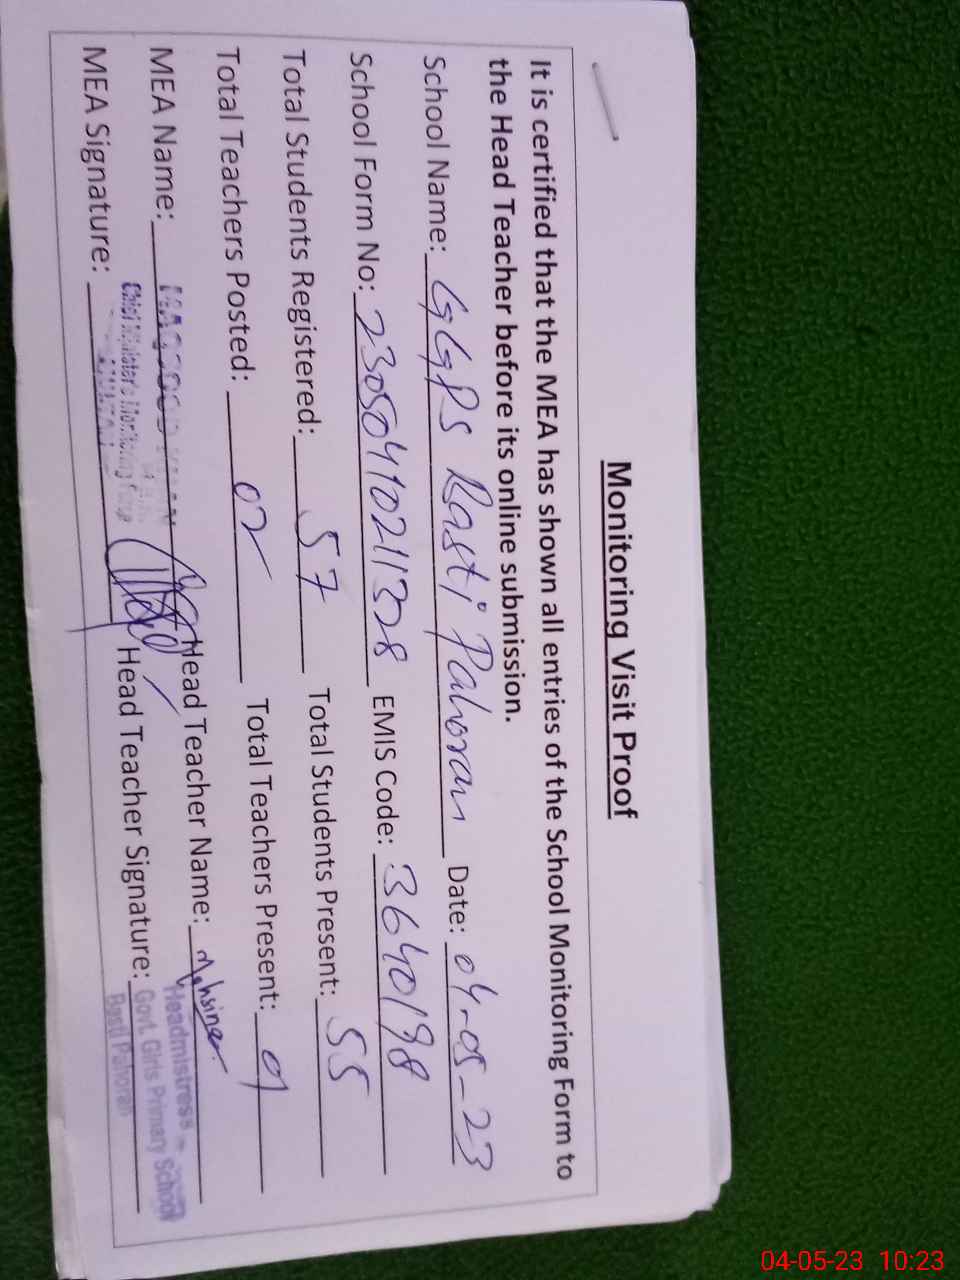 Monitoring Visit Proof
It is certified that the MEA has shown all entries of the School Monitoring Form to
the Head Teacher before its online submission.
School Name: GGPS Basti Pahoran Date: 04-05-23
School Form No: 23050410211328 EMIS Code: 3640198
Total Students Registered: 57 Total Students Present: 55
Total Teachers Posted: 02 Total Teachers Present: 01
MEA Name: Head Teacher Name: Mohsina
Headmistress
MEA Signature: Chief Minister's Monitoring Force Head Teacher Signature: Govt. Girls Primary School
Basti Pahoran
04-05-23 10:23